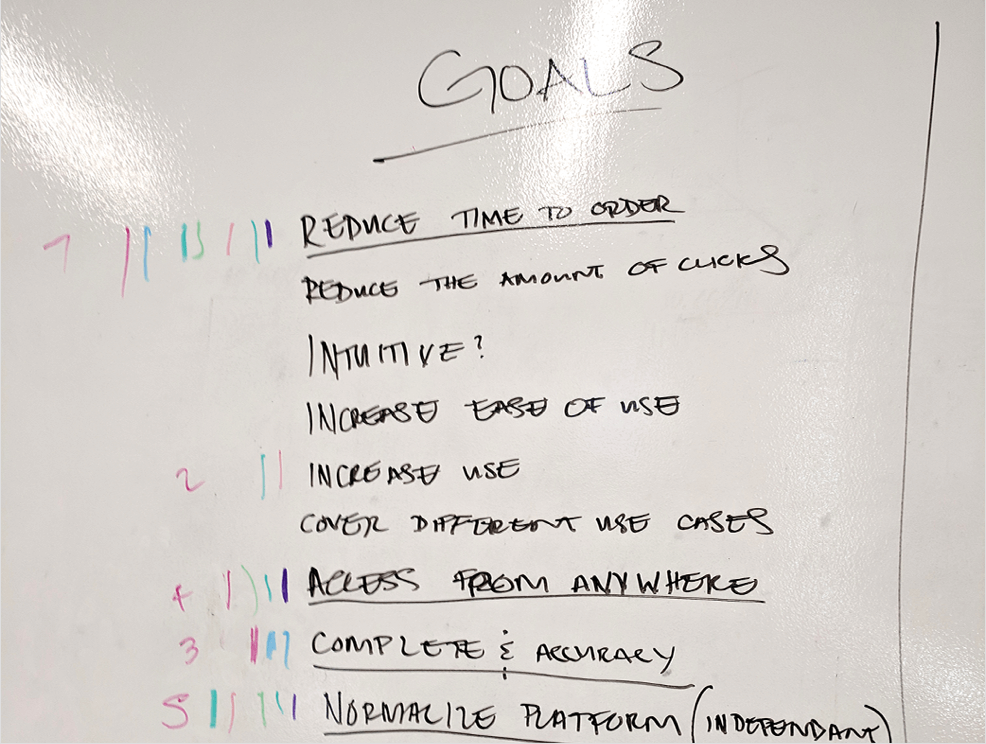 GOALS
7 REDUCE TIME TO ORDER
REDUCE THE AMOUNT OF CLICKS
INTUITIVE?
INCREASE EASE OF USE
2 INCREASE USE
COVER DIFFERENT USE CASES
4 ACCESS FROM ANYWHERE
3 COMPLETE & ACCURACY
5 NORMALIZE PLATFORM (INDEPENDANT)